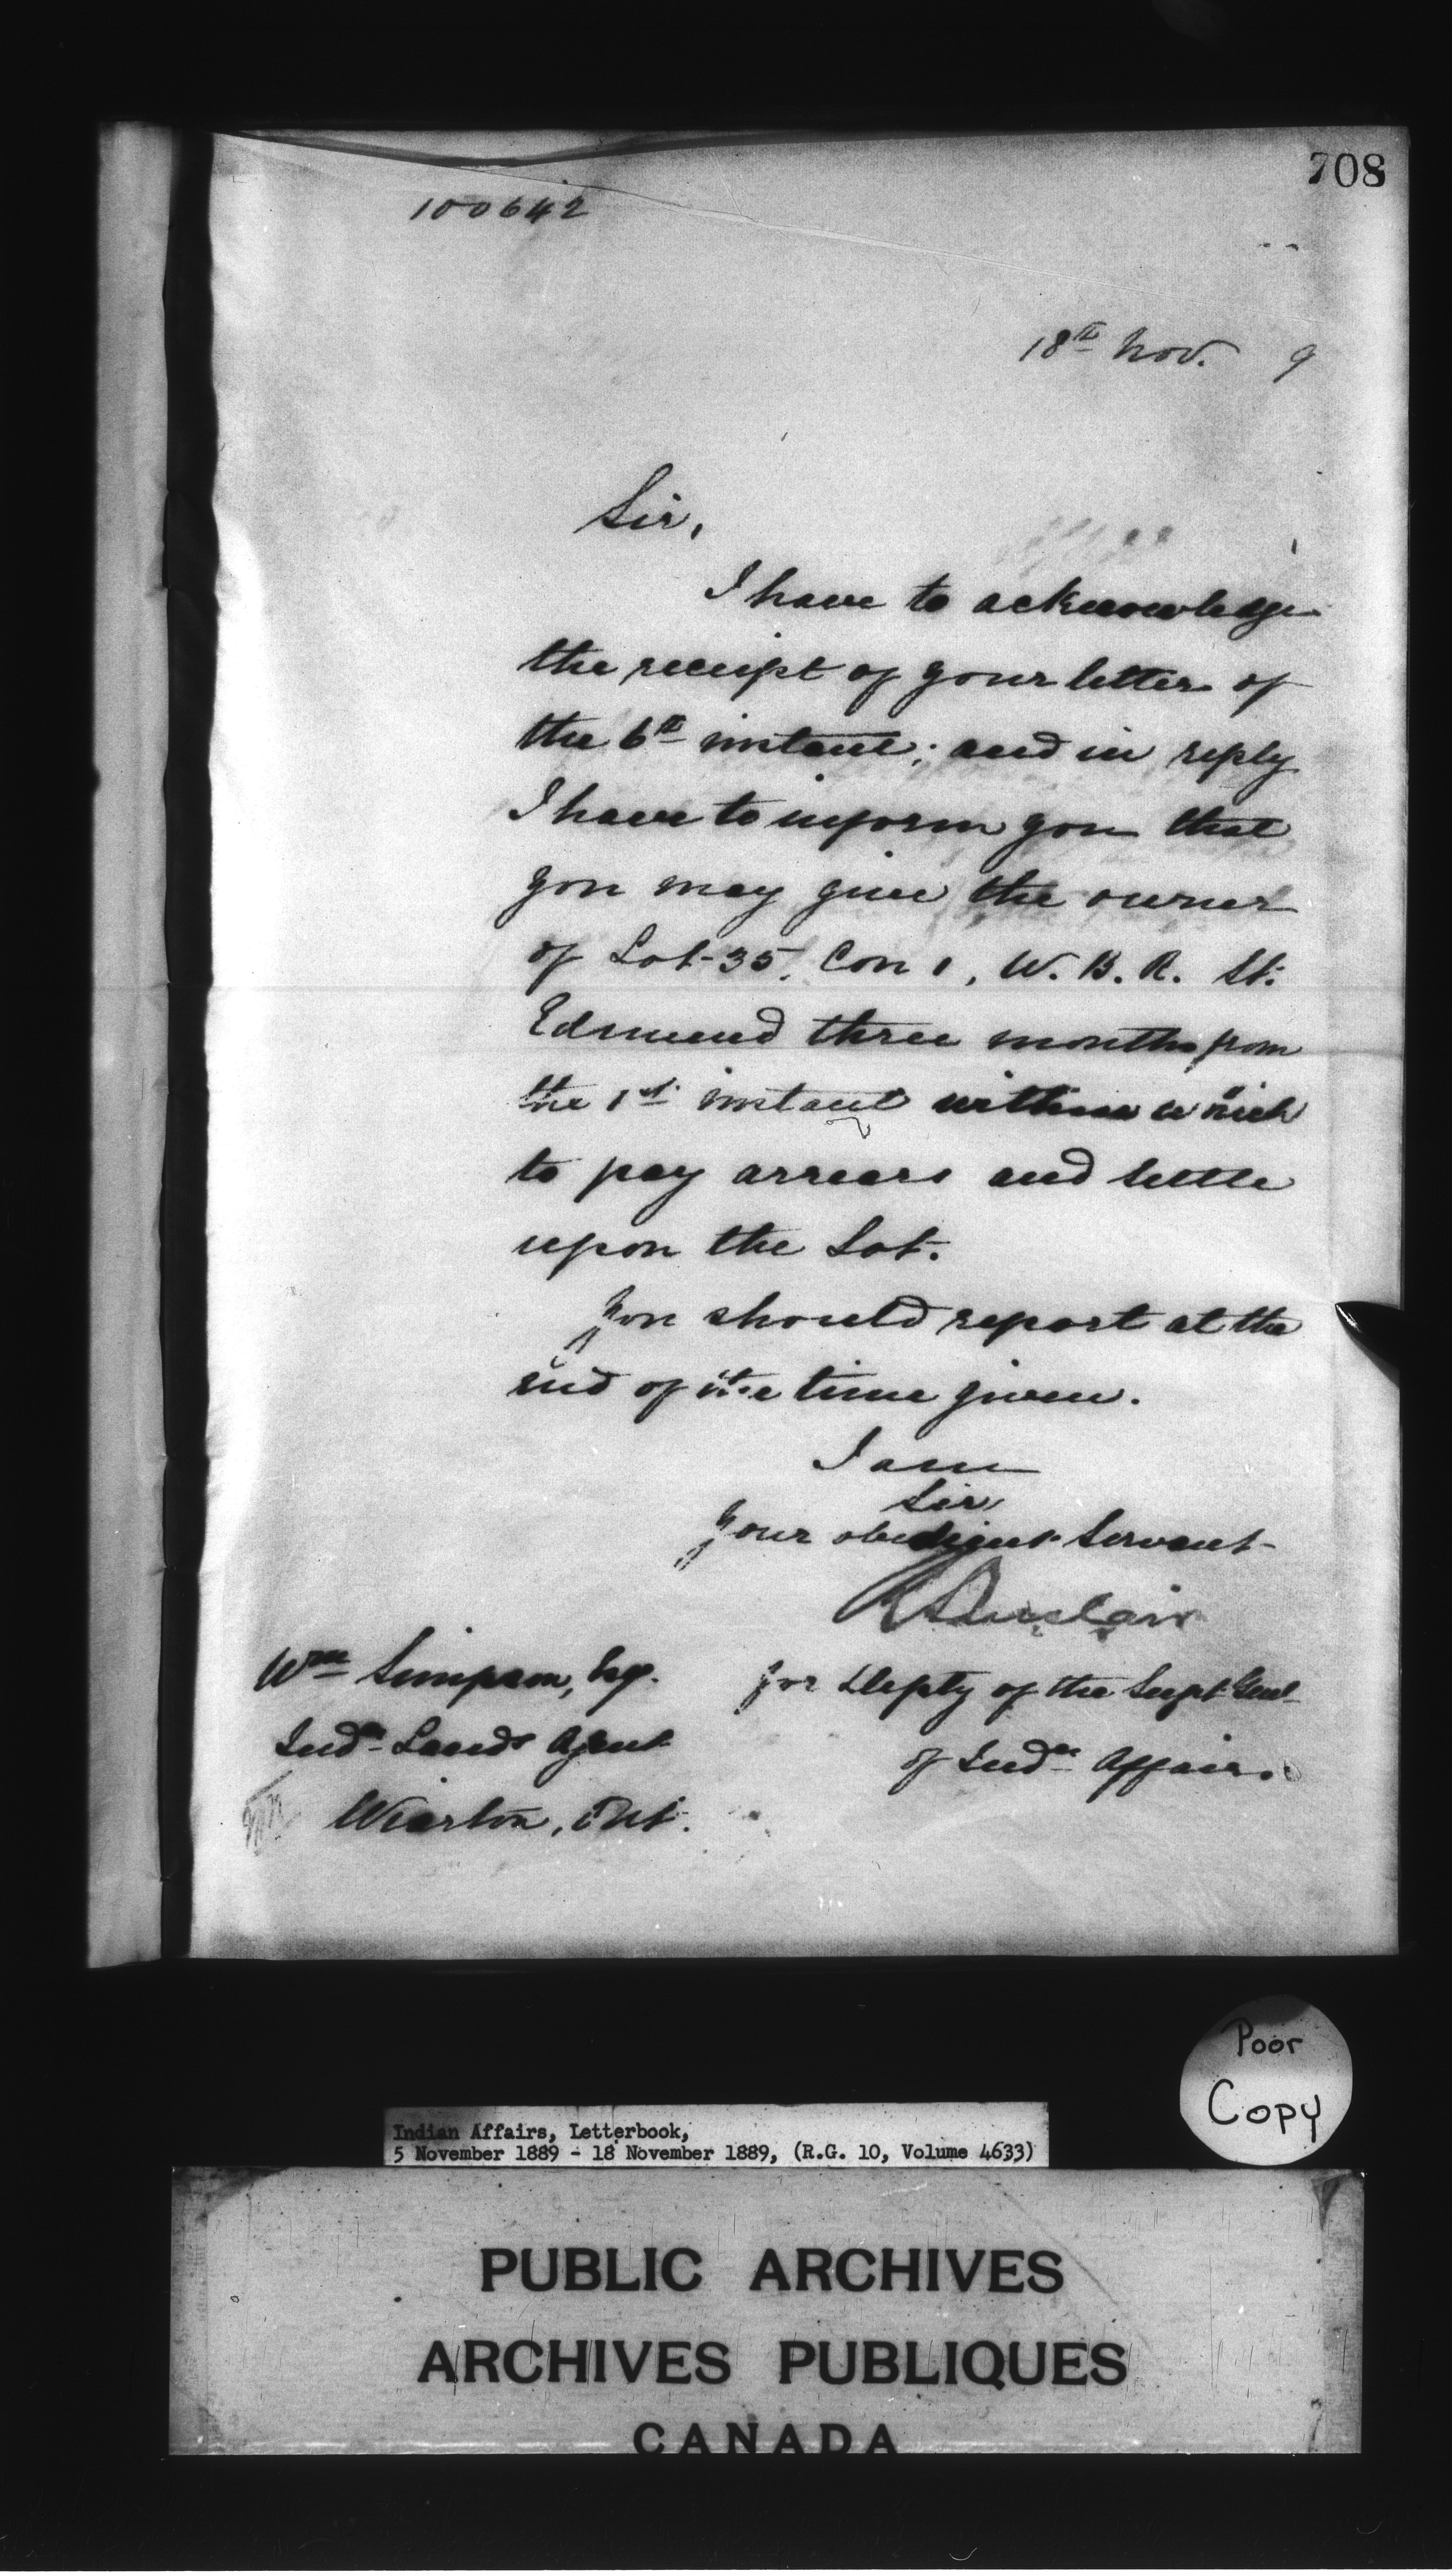 708
100642
18th Nov. 9
Sir,
I have to acknowledge
the receipt of your letter of
the 6th instant; and in reply
I have to inform you that
you may give the owner
of Lot 35, Con 1, W. B. R. St.
Edmund three months from
the 1st instant within which
to pay arrears and settle
upon the Lot.
You should report at the
end of the time given.
I am
Sir,
Your obedient Servant
R Sinclair
for Depty of the Supt Genl
of Indn Affairs.
Wm Simpson, Esq.
Indn Lands Agent
Wiarton, Ont.
Poor
Copy
Indian Affairs, Letterbook,
5 November 1889 - 18 November 1889, (R.G. 10, Volume 4633)
PUBLIC ARCHIVES
ARCHIVES PUBLIQUES
CANADA